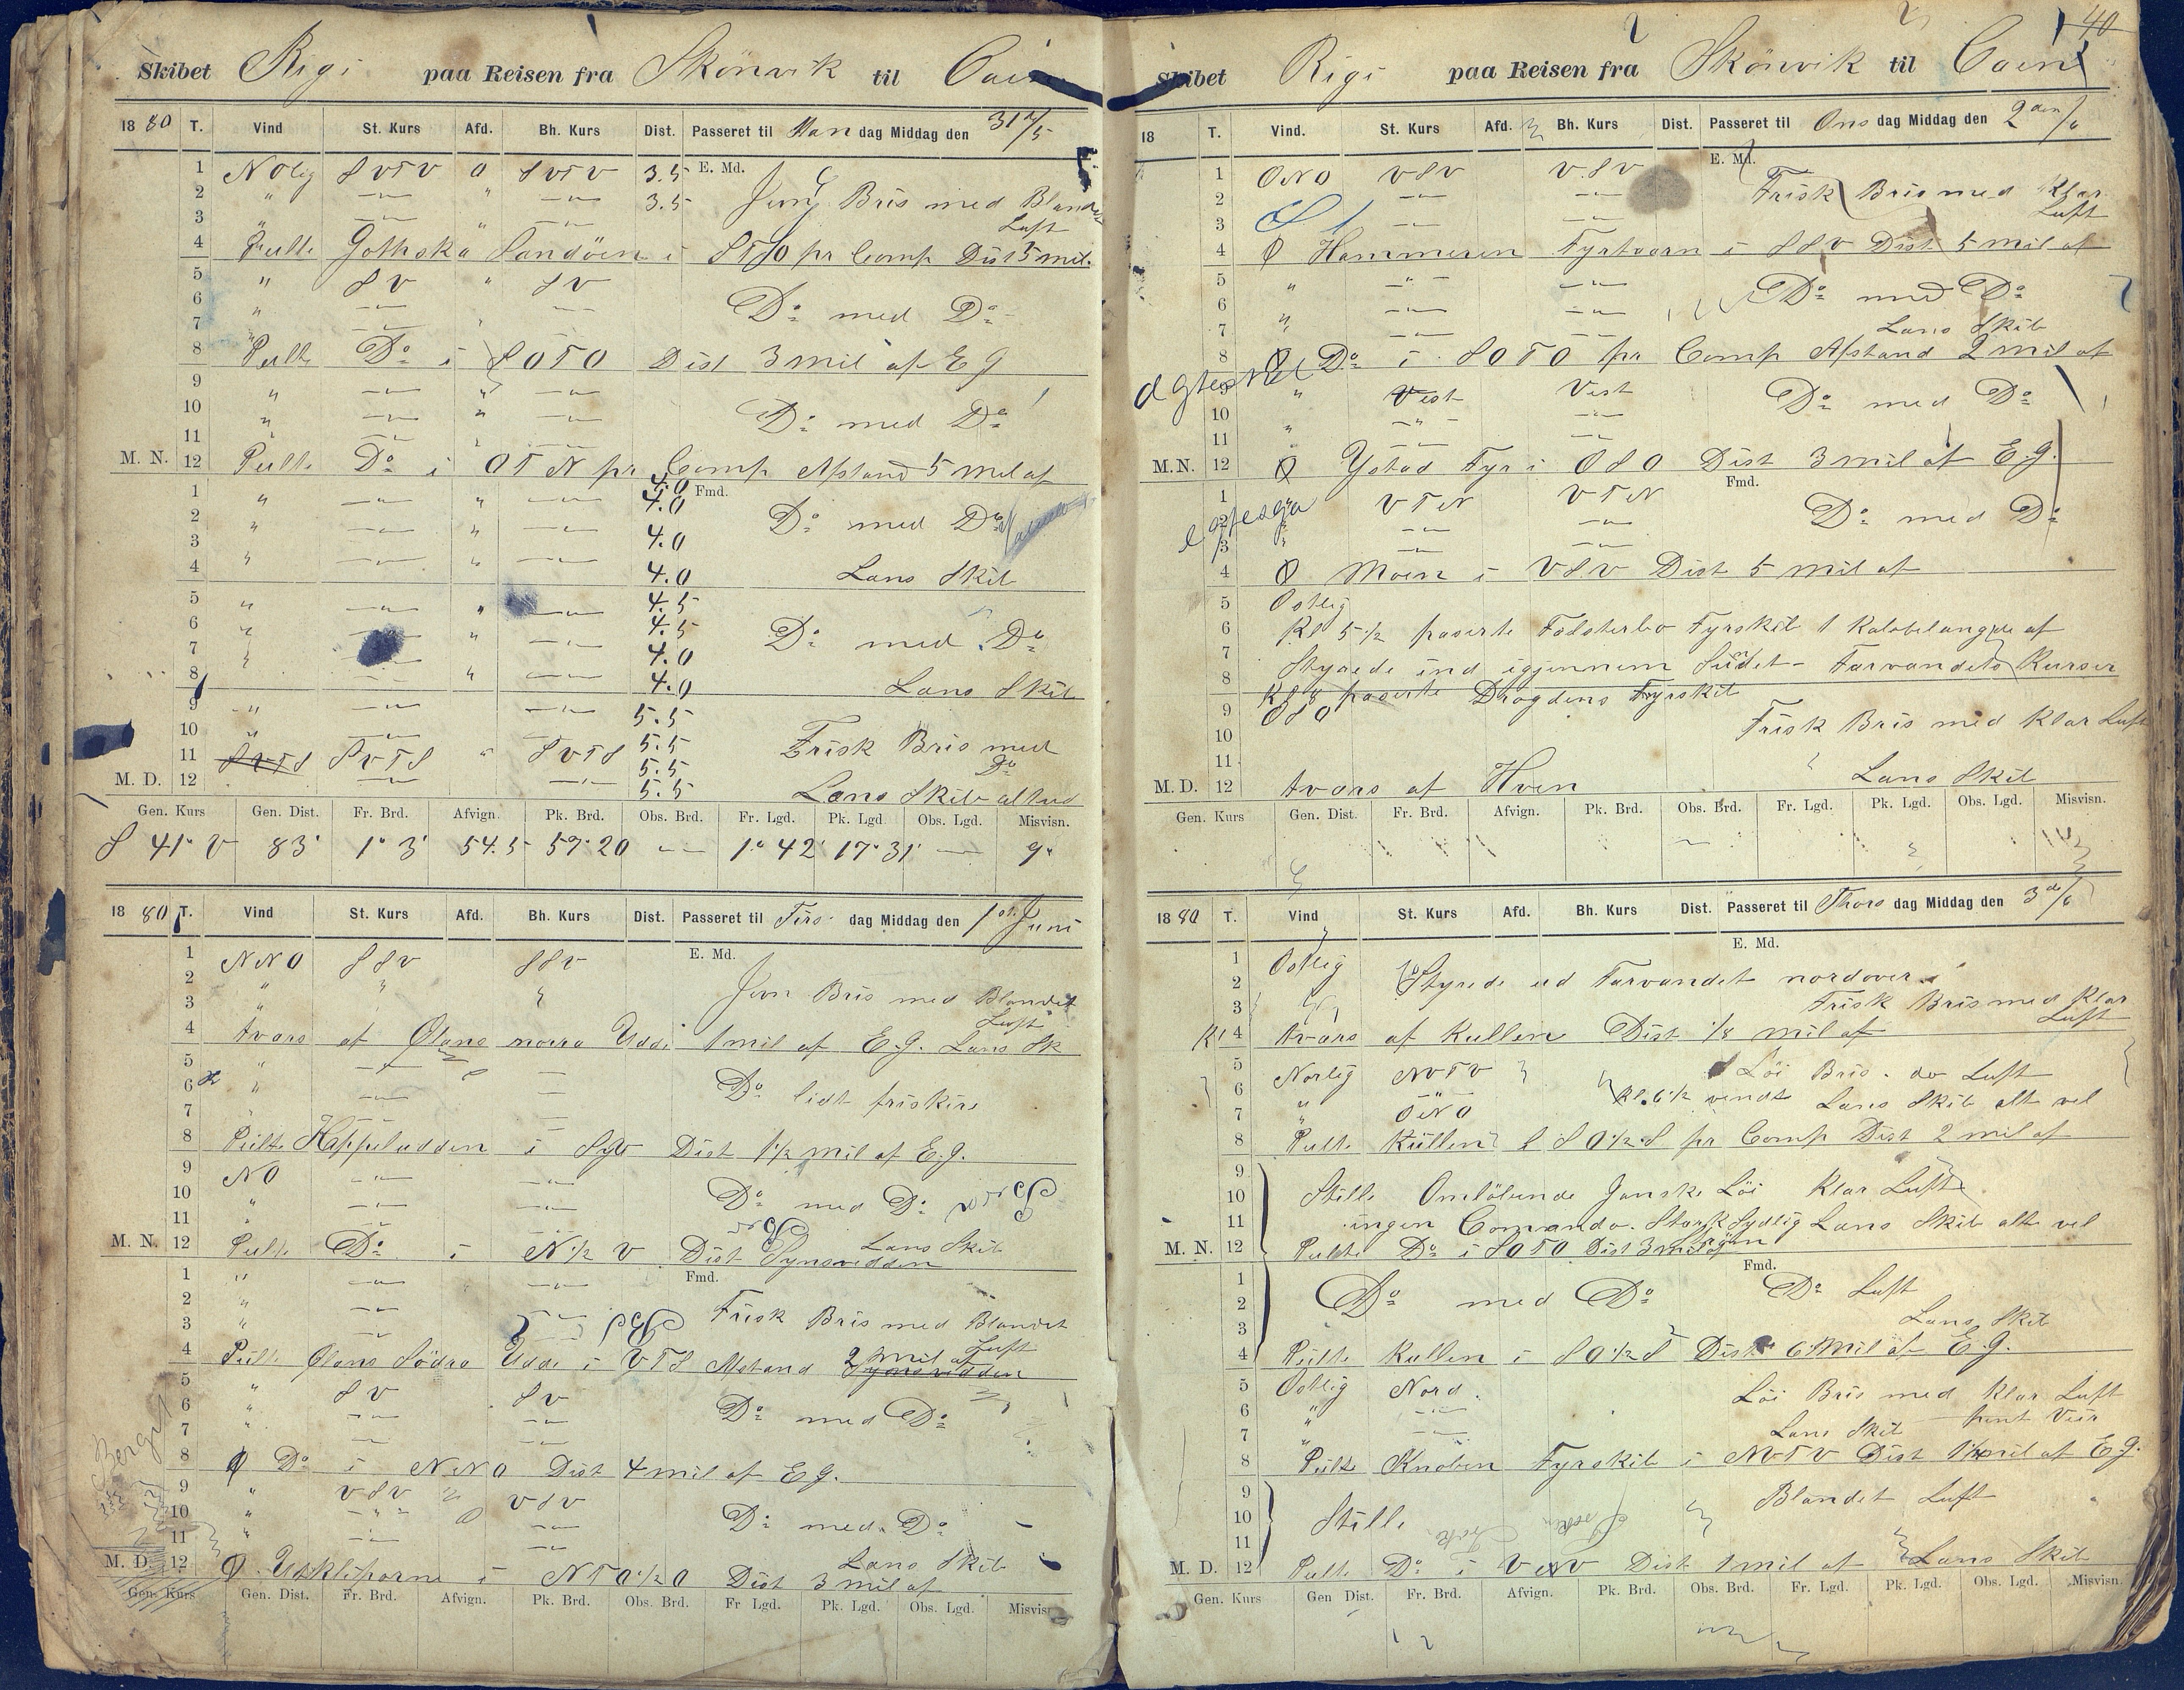 Skibet Rigi paa Reisen fra Skönvik til Caen
1880 T. Vind St. Kurs Afd. Bh. Kurs Dist. Passeret til Man dag Middag den 31te/5
1 NOlig SVTV 0 SVTV 3.5 E. Md.
2 " " 3.5 Jevn Bris med Blandet
3 " " Luft
4 Peilte Gothska Sandöen i STSO pr Comp Dist 5 mil.
5 " SV " SV
6 " Do med Do
7
8 Peilte Do i SOTO Dist 3 mil af E G
9 " "
10 " " Do med Do
11 "
M. N. 12 Peilte Do i OTN pr Comp Afstand 5 mil af
4.0
1 " " 4.0 Fmd.
2 " " Do med Do
3 " " 4.0
4 " " 4.0 Lens Skib
5 " " 4.5
6 " " 4.5 Do med Do
7 " 4.0
8 " 4.0 Lens Skib
9 " 5.5
10 " 5.5 Frisk Bris med
11 SVTS SVTS " SVTS 5.5 Do
M. D. 12 5.5 Lens Skib altid
Gen. Kurs Gen. Dist. Fr. Brd. Afvign. Pk. Brd. Obs. Brd. Fr. Lgd. Pk. Lgd Obs. Lgd. Misvisn.
S 41° V 83' 1° 3' 54.5 57° 20 1° 42' 17° 31' 9°
1880 T. Vind St. Kurs Afd. Bh. Kurs Dist. Passeret til Tirs dag Middag den 1st. Juni
1 NNO SSV SSV E. Md.
2 " " Jevn Bris med Blandet
3 " " Luft
4 tvars af Ölans norra Udde 1 mil af E.G. Lens Sk
5 "
6 " Do lidt friskere
7 "
8 Peilte Kappeludden i Dist 1 1/2 mil af E.G.
9 NO
10 " Do med Do
11
M. N. 12 Peilte Do i N 1/2 V Dist Synsvidden Lens Skib
1 " Fmd.
2 "
3 " Frisk Bris med Blandet
4 Peilte Ölans Södra Udde i VTS Afstand 2 mil af Luft
Synsvidden
5 " SV SV
6 " Do med Do
7 "
8 Do i NNO Dist 4 mil af E G.
9 " VSV VSV
10 " " Do med Do
11 "
M. D. 12 Utklipporne i NTO 1/2 O Dist 3 mil af Lens Skib
Gen. Kurs Gen. Dist. Fr. Brd. Afvign. Pk. Brd. Obs. Brd. Fr Lgd. Pk. Lgd. Obs. Lgd. Misvisn
40
Skibet Rigi paa Reisen fra Skönvik til Caen
18 T. Vind. St. Kurs Afd. Bh. Kurs Dist. Passeret til Ons dag Middag den 2den/6
1 ONO VSV VSV E. Md.
2 Frisk Bris med Klar
3 Luft
4 Hammeren Fyrtaarn i SSV Dist 5 mil af
5 " "
6 " Do med Do
7 " Lens Skib
8 Do i SOTO pr Comp Afstand 2 mil af
9 " Vest Vest
10 " " Do med Do
11 "
M. N. 12 Ystad Fyr i OSO Dist 3 mil af E.G.
1 " VTN VTN Fmd.
2 Do med Do
3 "
4 Moen i VSV Dist 5 mil af
5 Ostlig
6 Kl 5 1/2 paserte Falsterbo Fyrskib 1 Kabelængde af
7 Styrede ind igjennem Sundet - Farvandets Kurser
8 Kl 8 paserte Drogdens Fyrskib
9 OSO
10 Frisk Bris med Klar Luft
11
M. D. 12 tvars af Hven Lens Skib
Gen. Kurs Gen. Dist. Fr. Brd. Afvign. Pk. Brd. Obs. Brd. Fr. Lgd. Pk. Lgd. Obs. Lgd. Misvisn.
1880 T. Vind St. Kurs Afd. Bh. Kurs Dist. Passeret til Thors dag Middag den 3de/6
1 Ostlig E. Md.
2 Styrede ud Farvandet nordover
3 Frisk Bris med Klar
4 tvars af Kullen Dist 1/8 mil af Luft
5 Norlig NVTV Löi Bris. do Luft
6 " " Kl. 6 1/2 vendt Lens Skib alt vel
7 " ONO
8 Peilte Kullen SO 1/2 S pr Comp Dist 2 mil af
9
10 Stille Omlöbende Ganske Löi Klar Luft
11 ingen Comando. Stærk Sydlig Lens Skib alt vel
Strøm
M. N. 12 Peilte Do i SOTO Dist 3 mil af
1 Fmd.
2 Do med Do Do Luft
3 Lens Skib
4 Peilte Kullen i SO 1/2 S Dist 6 mil af E.G.
5 Ostlig Nord. Löi Bris med Klar Luft
6 " "
7 " Lens Skib pent Veir
8 Peilte Knoben Fyrskib i NVTV Dist mil af E G.
9 Blandet Luft
10 Stille
11
M. D. 12 Peilte Do i VNV Dist 1 mil af Lens Skib
Gen. Kurs Gen Dist. Fr. Brd. Afvign. Pk. Brd. Obs. Brd. Fr. Lgd. Pk. Lgd. Obs. Lgd. Misvisn.